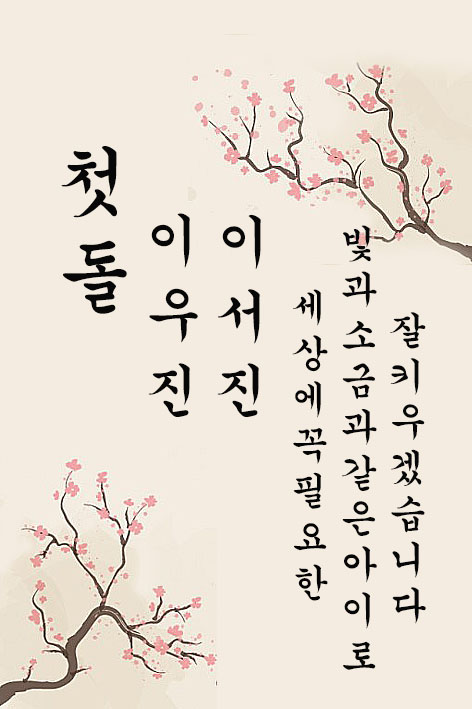 첫돌
이우진
이서진
세상에꼭필요한
빛과소금과같은아이로
잘키우겠습니다